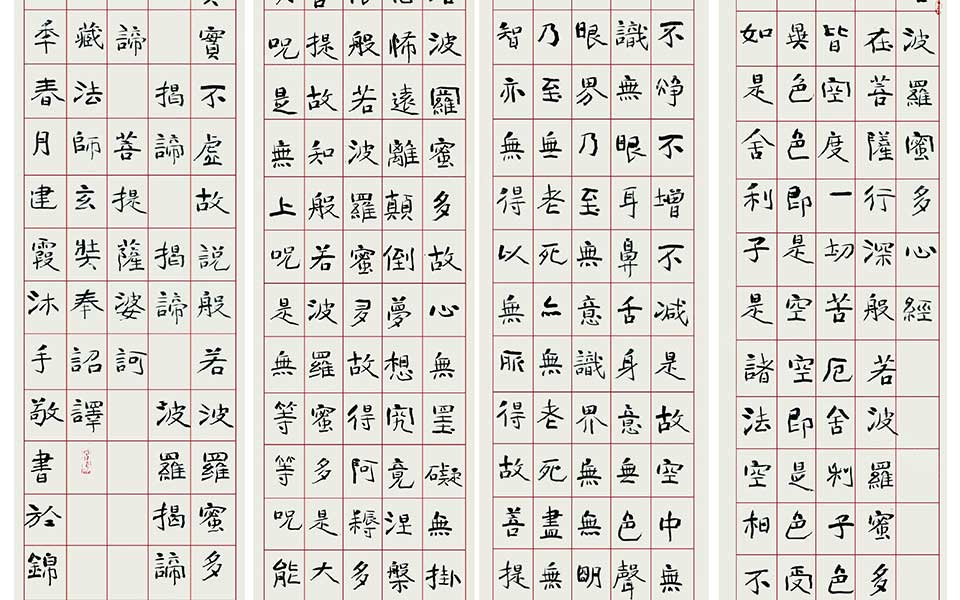 波羅蜜多心經
在菩薩行深般若波羅蜜多
皆空度一切苦厄舍利子色
異色色即是空空即是色受
如是舍利子是諸法空相不
不淨不增不减是故空中無
識無眼耳鼻舌身意無色聲
眼界乃至無意識界無無明
乃至無老死亦無老死盡無
智亦無得以無所得故菩提
波羅蜜多故心無罣礙無掛
怖遠離顛倒夢想究竟涅槃
般若波羅蜜多故得阿耨多
提故知般若波羅蜜多是大
呪是無上呪是無等等呪能
實不虛故說般若波羅蜜多
揭諦 揭諦 波羅揭諦
諦 菩提薩婆訶
藏法師玄奘奉詔譯
季春月建霞沐手敬書於錦